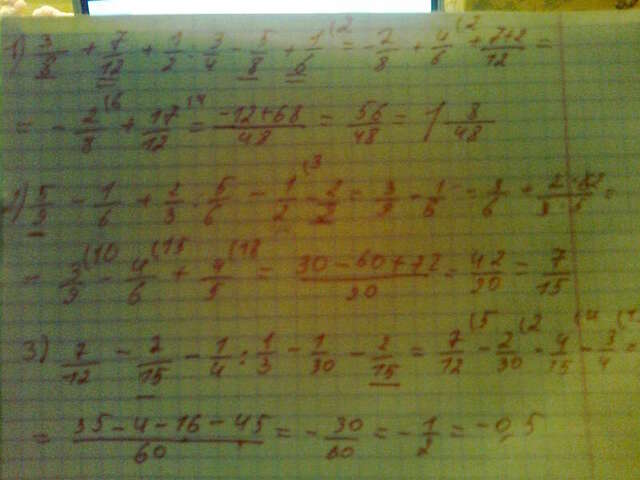 1) 3/8 + 7/12 + 1/2 · 3/4 - 5/8 + 1/6 (2 = - 2/8 + 4/6 (2 + 7+2/12 =
= - 2/8 (6 + 17/12 (4 = -12+68/48 = 56/48 = 1 8/48
5/9 - 1/6 + 2/3 · 5/6 - 1/2 (3
= 3/9 (10 - 4/6 (15 + 4/5 (18 = 30-60+72/90 = 42/90 = 7/15
3) 7/12 - 2/15 - 1/4 : 1/3 - 1/30 - 2/15 = 7/12 (5 - 2/30 (2 - 4/15 (4 - 3/4 =
= 35-4-16-45/60 = - 30/60 = - 1/2 = -0,5